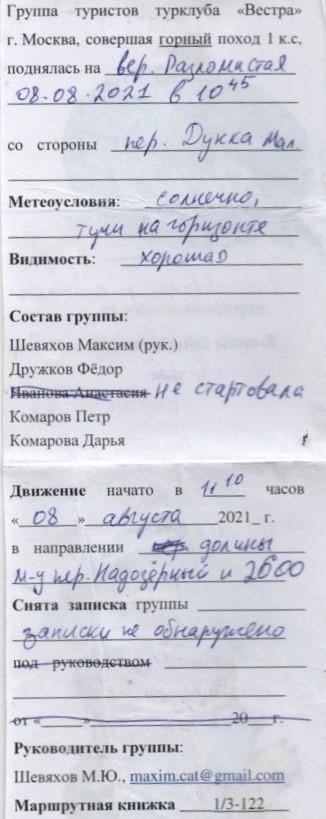 Группа туристов турклуба «Вестра»
г. Москва, совершая горный поход 1 к.с,
поднялась на вер. Разломистая
08.08.2021 в 10 45
со стороны пер. Дукка Мал.
Метеоусловия: солнечно,
тучи на горизонте
Видимость: хорошая
Состав группы:
Шевяхов Максим (рук.)
Дружков Фёдор
Иванова Анастасия не стартовала
Комаров Петр
Комарова Дарья
Движение начато в 11 10 часов
«08» августа 2021_ г.
в направлении пер. долины
м-у пер. Надозёрный и 2600
Снята записка группы
записки не обнаружено
под руководством
от «    » 20    г.
Руководитель группы:
Шевяхов М.Ю., maxim.cat@gmail.com
Маршрутная книжка 1/3-122